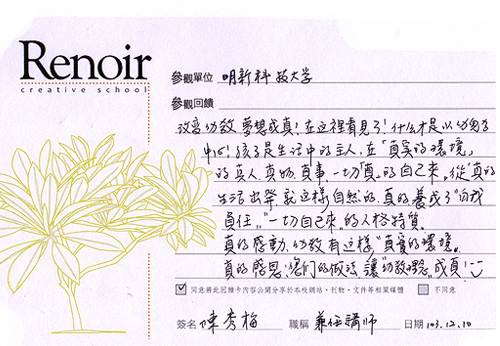 Renoir
creative school
參觀單位 明新科技大學
參觀回饋
改寫幼教夢想成真!在這裡看見了!什麼才是以幼兒為
中心!孩子是生活中的主人,在「真實的環境」
的真人、真物、真事一切「真」的自己來。從"真"的
生活出發,就這樣自然的、真的養成了"自我
負責"、"一切自己來"的人格特質.
真的感動,幼教有這樣"真實的環境。
真的感恩!您們的做法讓"幼教理念"成真!
同意將此回饋卡內容公開分享於本校網站、刊物、文件等相關媒體 不同意
簽名 陳秀梅 職稱 兼任講師 日期 103.12.10